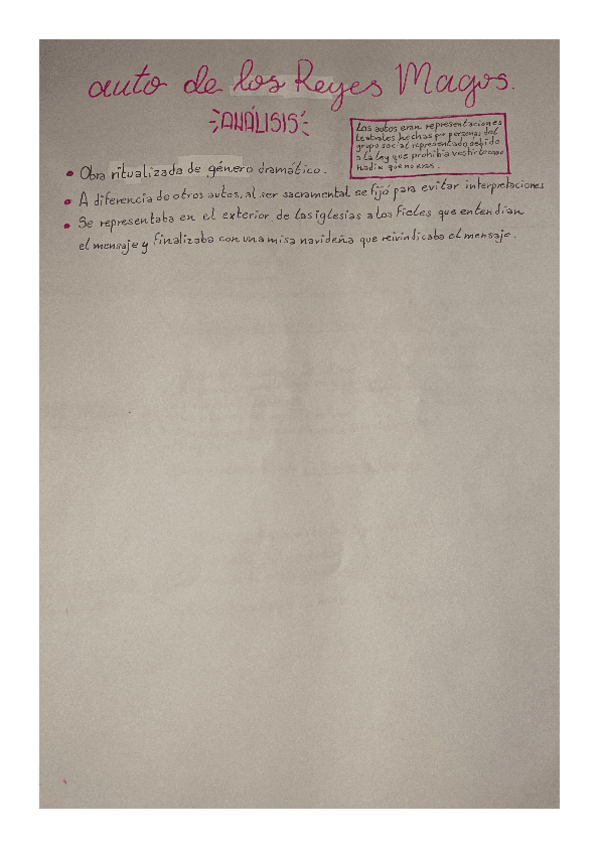 auto de los Reyes Magos.
ANÁLISIS
Los autos eran representaciones
teatrales hechas por personas del
grupo social representado debido
a la ley que prohibía vestir como
nadie que no eras.
Obra ritualizada de género dramático.
A diferencia de otros autos, al ser sacramental se fijó para evitar interpretaciones
Se representaba en el exterior de las iglesias a los fieles que entendían
el mensaje y finalizaba con una misa navideña que reivindicaba el mensaje.